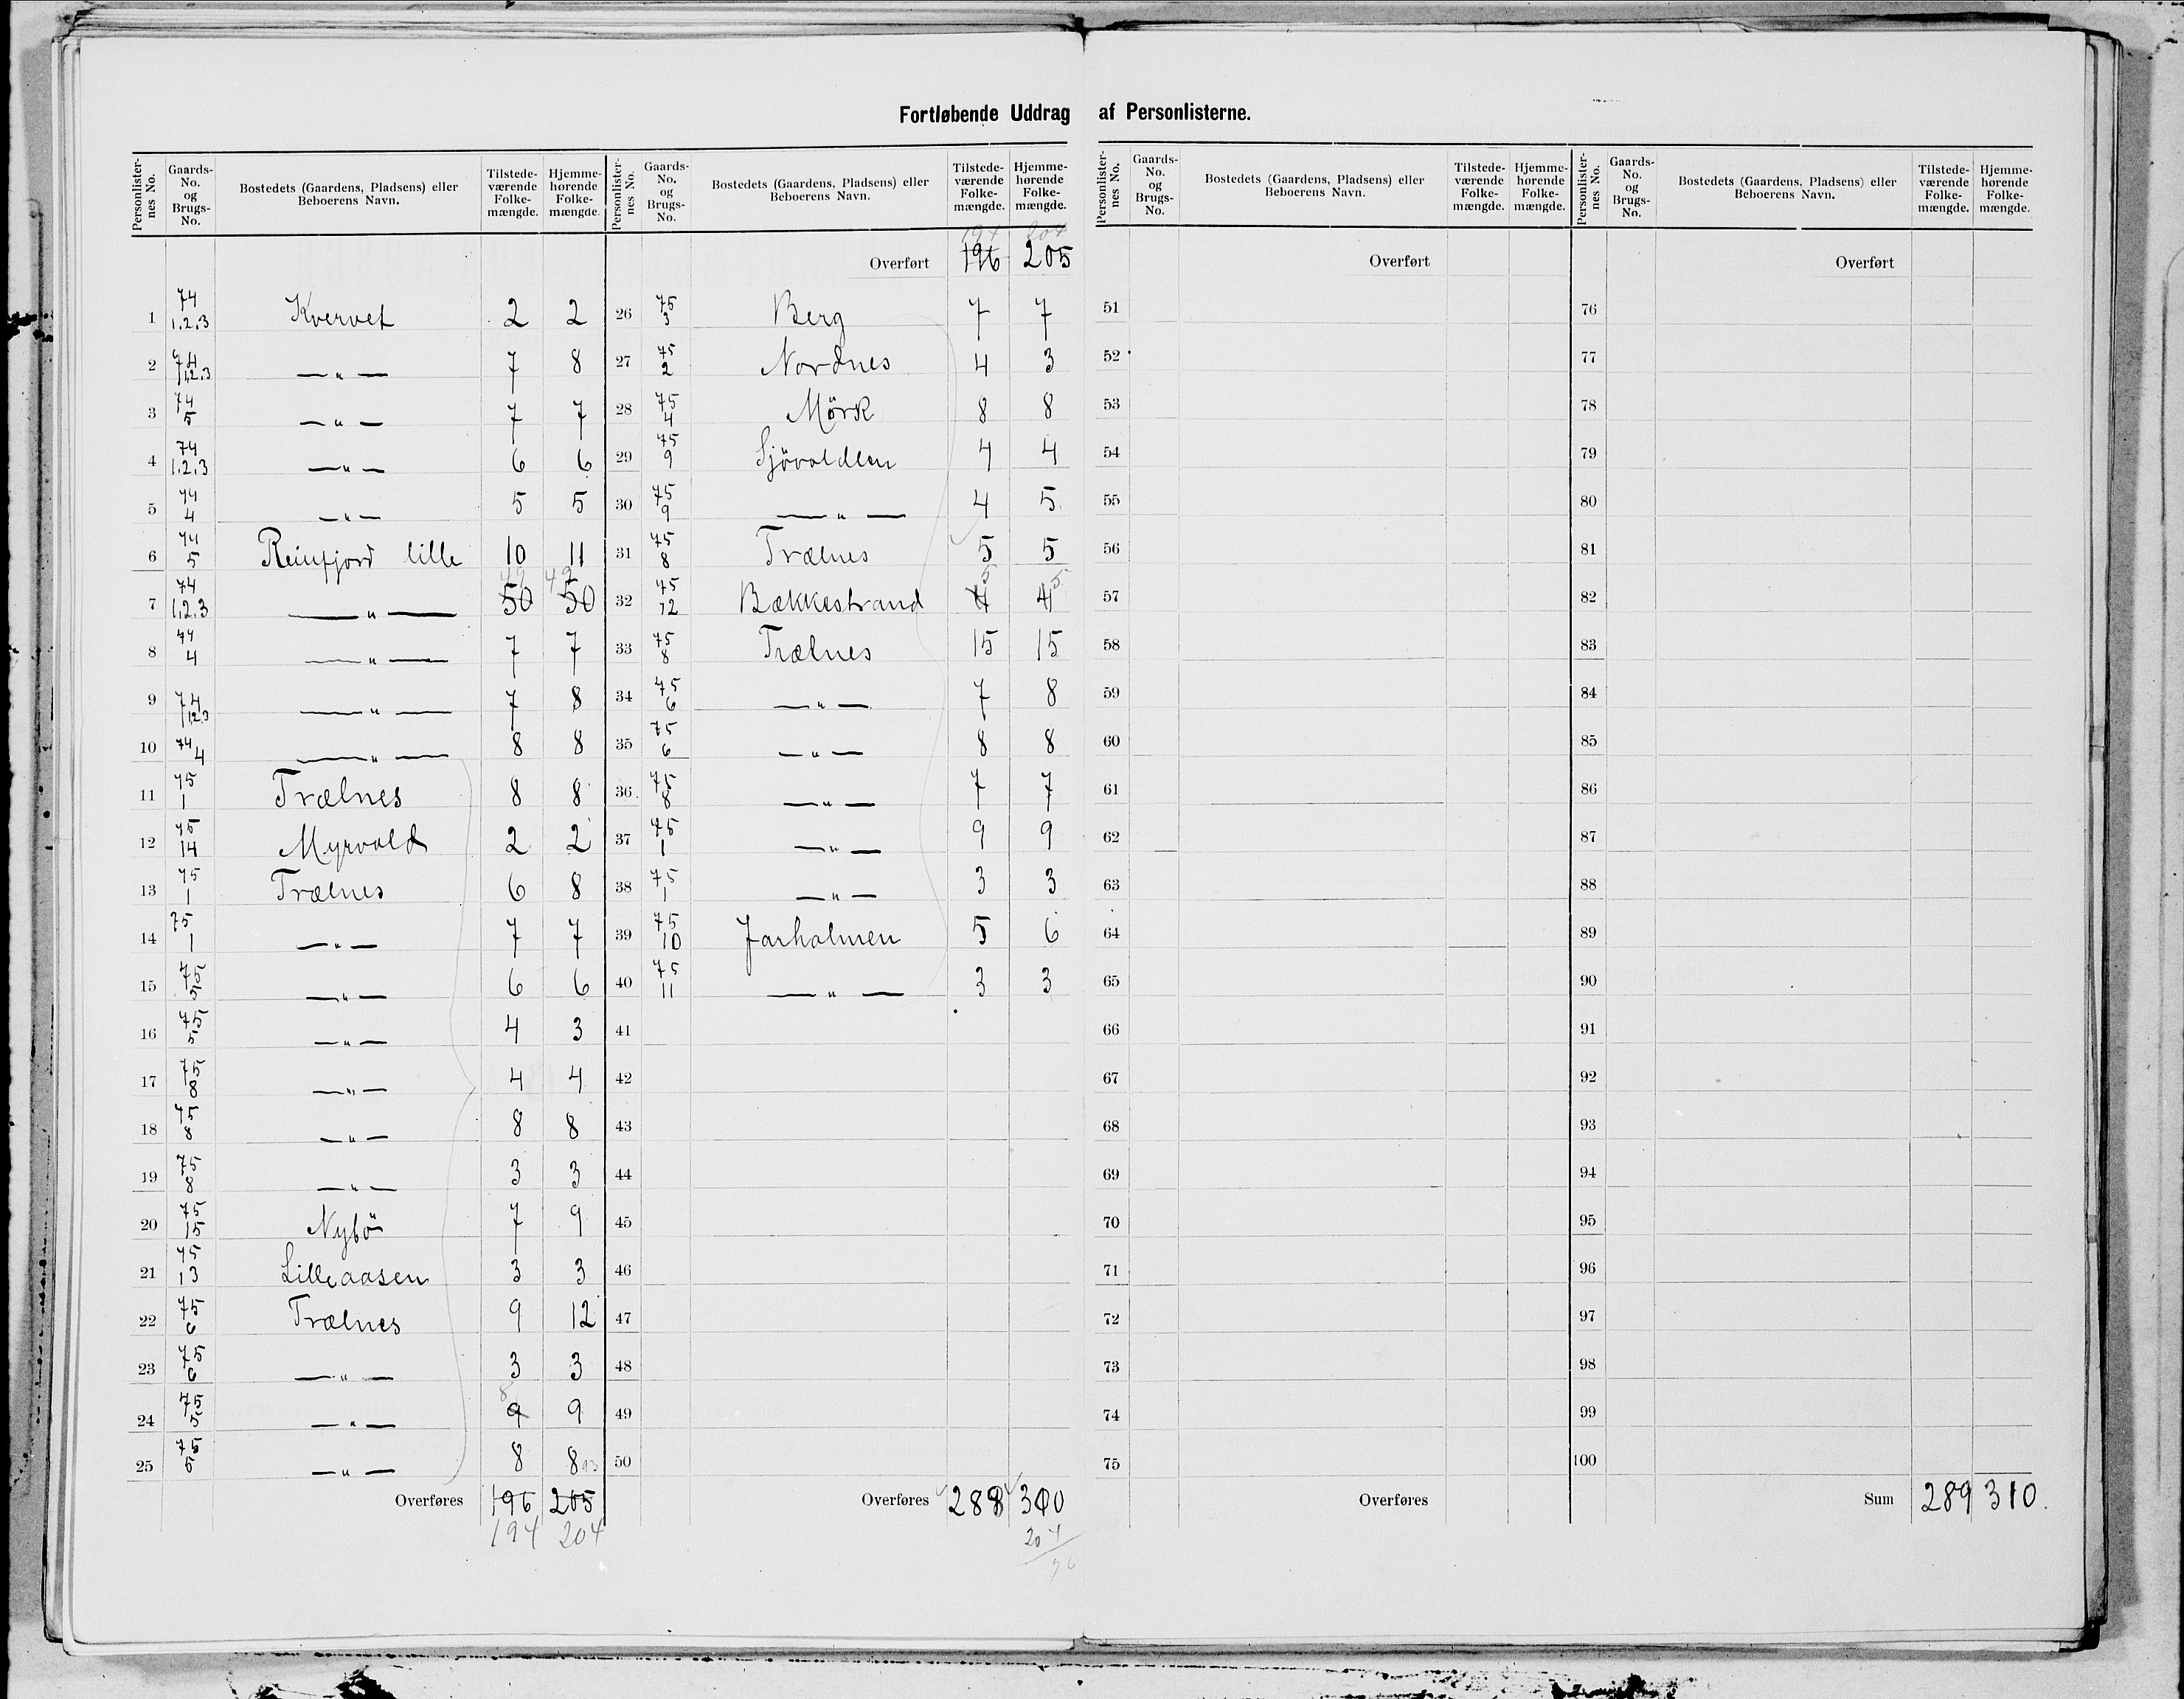 Fortløbende Uddrag af Personlisterne.
Personlister-nes No. Gaards-No. og Brugs-No. Bostedets (Gaardens, Pladsens) eller Beboerens Navn. Tilstede-værende Folke-mængde. Hjemme-hørende Folke-mængde.
Personlister-nes No. Gaards-No. og Brugs-No. Bostedets (Gaardens, Pladsens) eller Beboerens Navn. Tilstede-værende Folke-mængde. Hjemme-hørende Folke-mængde.
Personlister-nes No. Gaards-No. og Brugs-No. Bostedets (Gaardens, Pladsens) eller Beboerens Navn. Tilstede-værende Folke-mængde. Hjemme-hørende Folke-mængde.
Personlister-nes No. Gaards-No. og Brugs-No. Bostedets (Gaardens, Pladsens) eller Beboerens Navn. Tilstede-værende Folke-mængde. Hjemme-hørende Folke-mængde.
1 74 1.2.3 Kvervet 2 2
2 74 1.2.3 — „ — 7 8
3 74 5 — „ — 7 7
4 74 1.2.3 — „ — 6 6
5 74 4 — „ — 5 5
6 74 5 Reinfjord lille 10 11
7 74 1.2.3 — „ — 50 49 50 49
8 74 4 — „ — 7 7
9 74 1.2.3 — „ — 7 8
10 74 4 — „ — 8 8
11 75 1 Trælnes 8 8
12 75 14 Myrvold 2 2
13 75 1 Trælnes 6 8
14 75 1 — „ — 7 7
15 75 5 — „ — 6 6
16 75 5 — „ — 4 3
17 75 8 — „ — 4 4
18 75 8 — „ — 8 8
19 75 8 — „ — 3 3
20 75 15 Nybö 7 9
21 75 13 Lilleaasen 3 3
22 75 6 Trælnes 9 12
23 75 6 — „ — 3 3
24 75 5 — „ — 9 8 9
25 75 5 — „ — 8 8
Overføres 196 205
194 204
194 204
Overført 196 205
26 75 3 Berg 7 7
27 75 2 Nordnes 4 3
28 75 4 Mörk 8 8
29 75 9 Sjövoldlen 4 4
30 75 9 — „ — 4 5
31 75 8 Trælnes 5 5
32 75 12 Bækkestrand 4 5 4 5
33 75 8 Trælnes 15 15
34 75 6 — „ — 7 8
35 75 6 — „ — 8 8
36 75 8 — „ — 7 7
37 75 1 — „ — 9 9
38 75 1 — „ — 3 3
39 75 10 Jarholmen 5 6
40 75 11 — „ — 3 3
41
42
43
44
45
46
47
48
49
50
Overføres 288 300
204
96
Overført
51
52
53
54
55
56
57
58
59
60
61
62
63
64
65
66
67
68
69
70
71
72
73
74
75
Overføres
Overført
76
77
78
79
80
81
82
83
84
85
86
87
88
89
90
91
92
93
94
95
96
97
98
99
100
Sum 289 310.